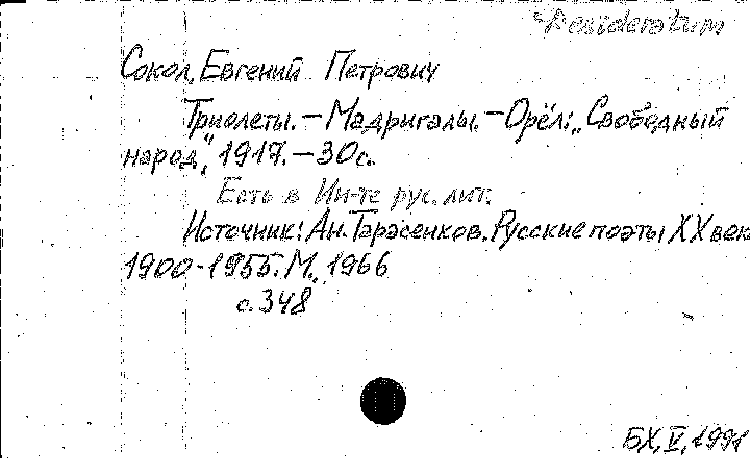 Desideratum
Сокол, Евгений Петрович
Триолеты. — Мадригалы. — Орёл: „Свободный
народ“, 1917. — 30 с.
Есть в Ин-те рус. лит.
Источник: Ан. Тарасенков. Русские поэты XX век
1900-1955. М., 1966
с. 348
БХ, V, 1991